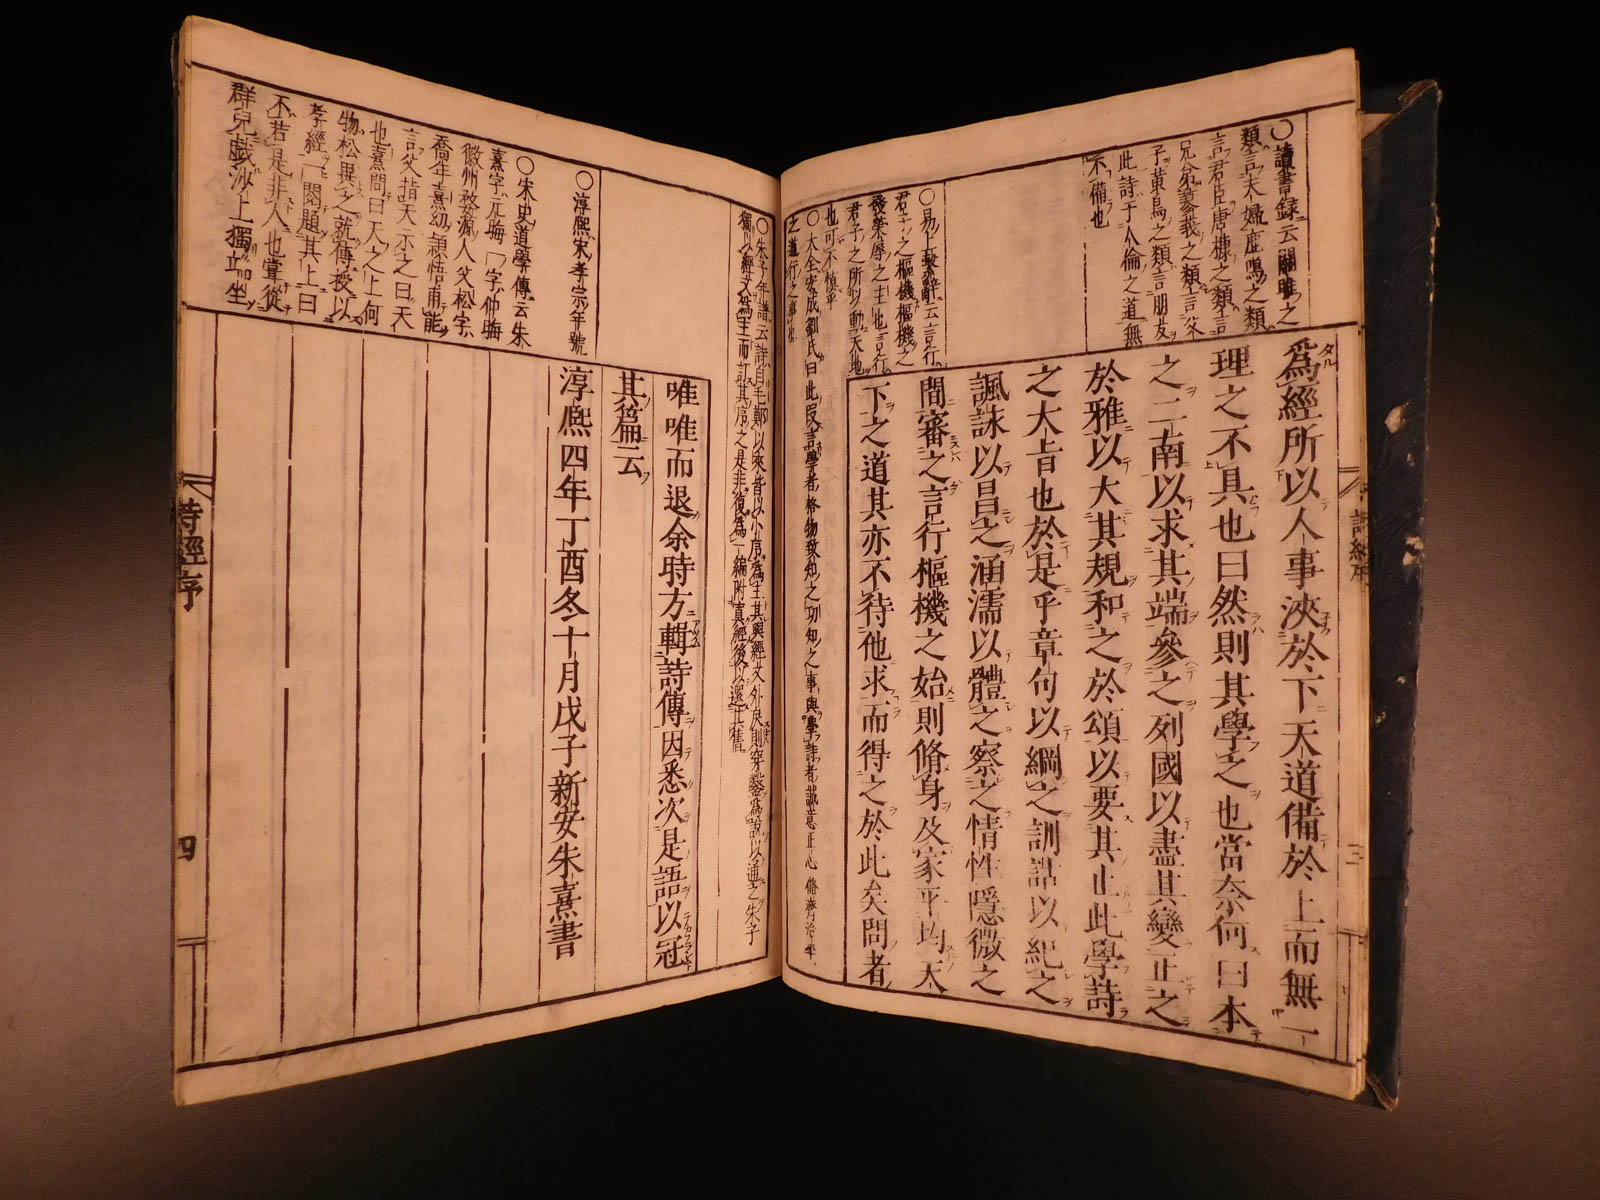 爲經所以人事浹於下天道備於上而無一
理之不具也曰然則其學之也當奈何曰本
之二南以求其端參之列國以盡其變正之
於雅以大其規和之於頌以要其止此學詩
之大旨也於是乎章句以綱之訓詁以紀之
諷詠以昌之涵濡以體之察之情性隱微之
間審之言行樞機之始則脩身及家平均天
下之道其亦不待他求而得之於此矣問者
〇讀書錄云關雎之
類言夫婦鹿鳴之類
言君臣唐棣之類言
兄弟蓼莪之類言父
子黃鳥之類言朋友
此詩于人倫之道無
不備也
〇易上繫辭云言行
君子之樞機樞機之
發榮辱之主也言行
君子之所以動天地
也可不慎乎
〇大全安成劉氏曰此段言學者格物致知之功知之事與學詩者誠意正心脩齊治平
之道行之事也
詩經序
三
〇朱子年譜云詩自毛鄭以來皆以小序爲主其與經文外戾則穿鑿爲說以通之朱子
獨以經文爲主而訂其序之是非復爲一編附寘經後以還其舊
唯唯而退余時方輯詩傳因悉次是語以冠
其篇云
淳熙四年丁酉冬十月戊子新安朱熹書
〇淳熙宋孝宗年號
〇宋史道學傳云朱
熹字元晦一字仲晦
徽州婺源人父松字
喬年熹幼穎悟甫能
言父指天示之曰天
也熹問曰天之上何
物松異之就傅授以
孝經一閱題其上曰
不若是非人也嘗從
群兒戲沙上獨端坐
詩經序
四